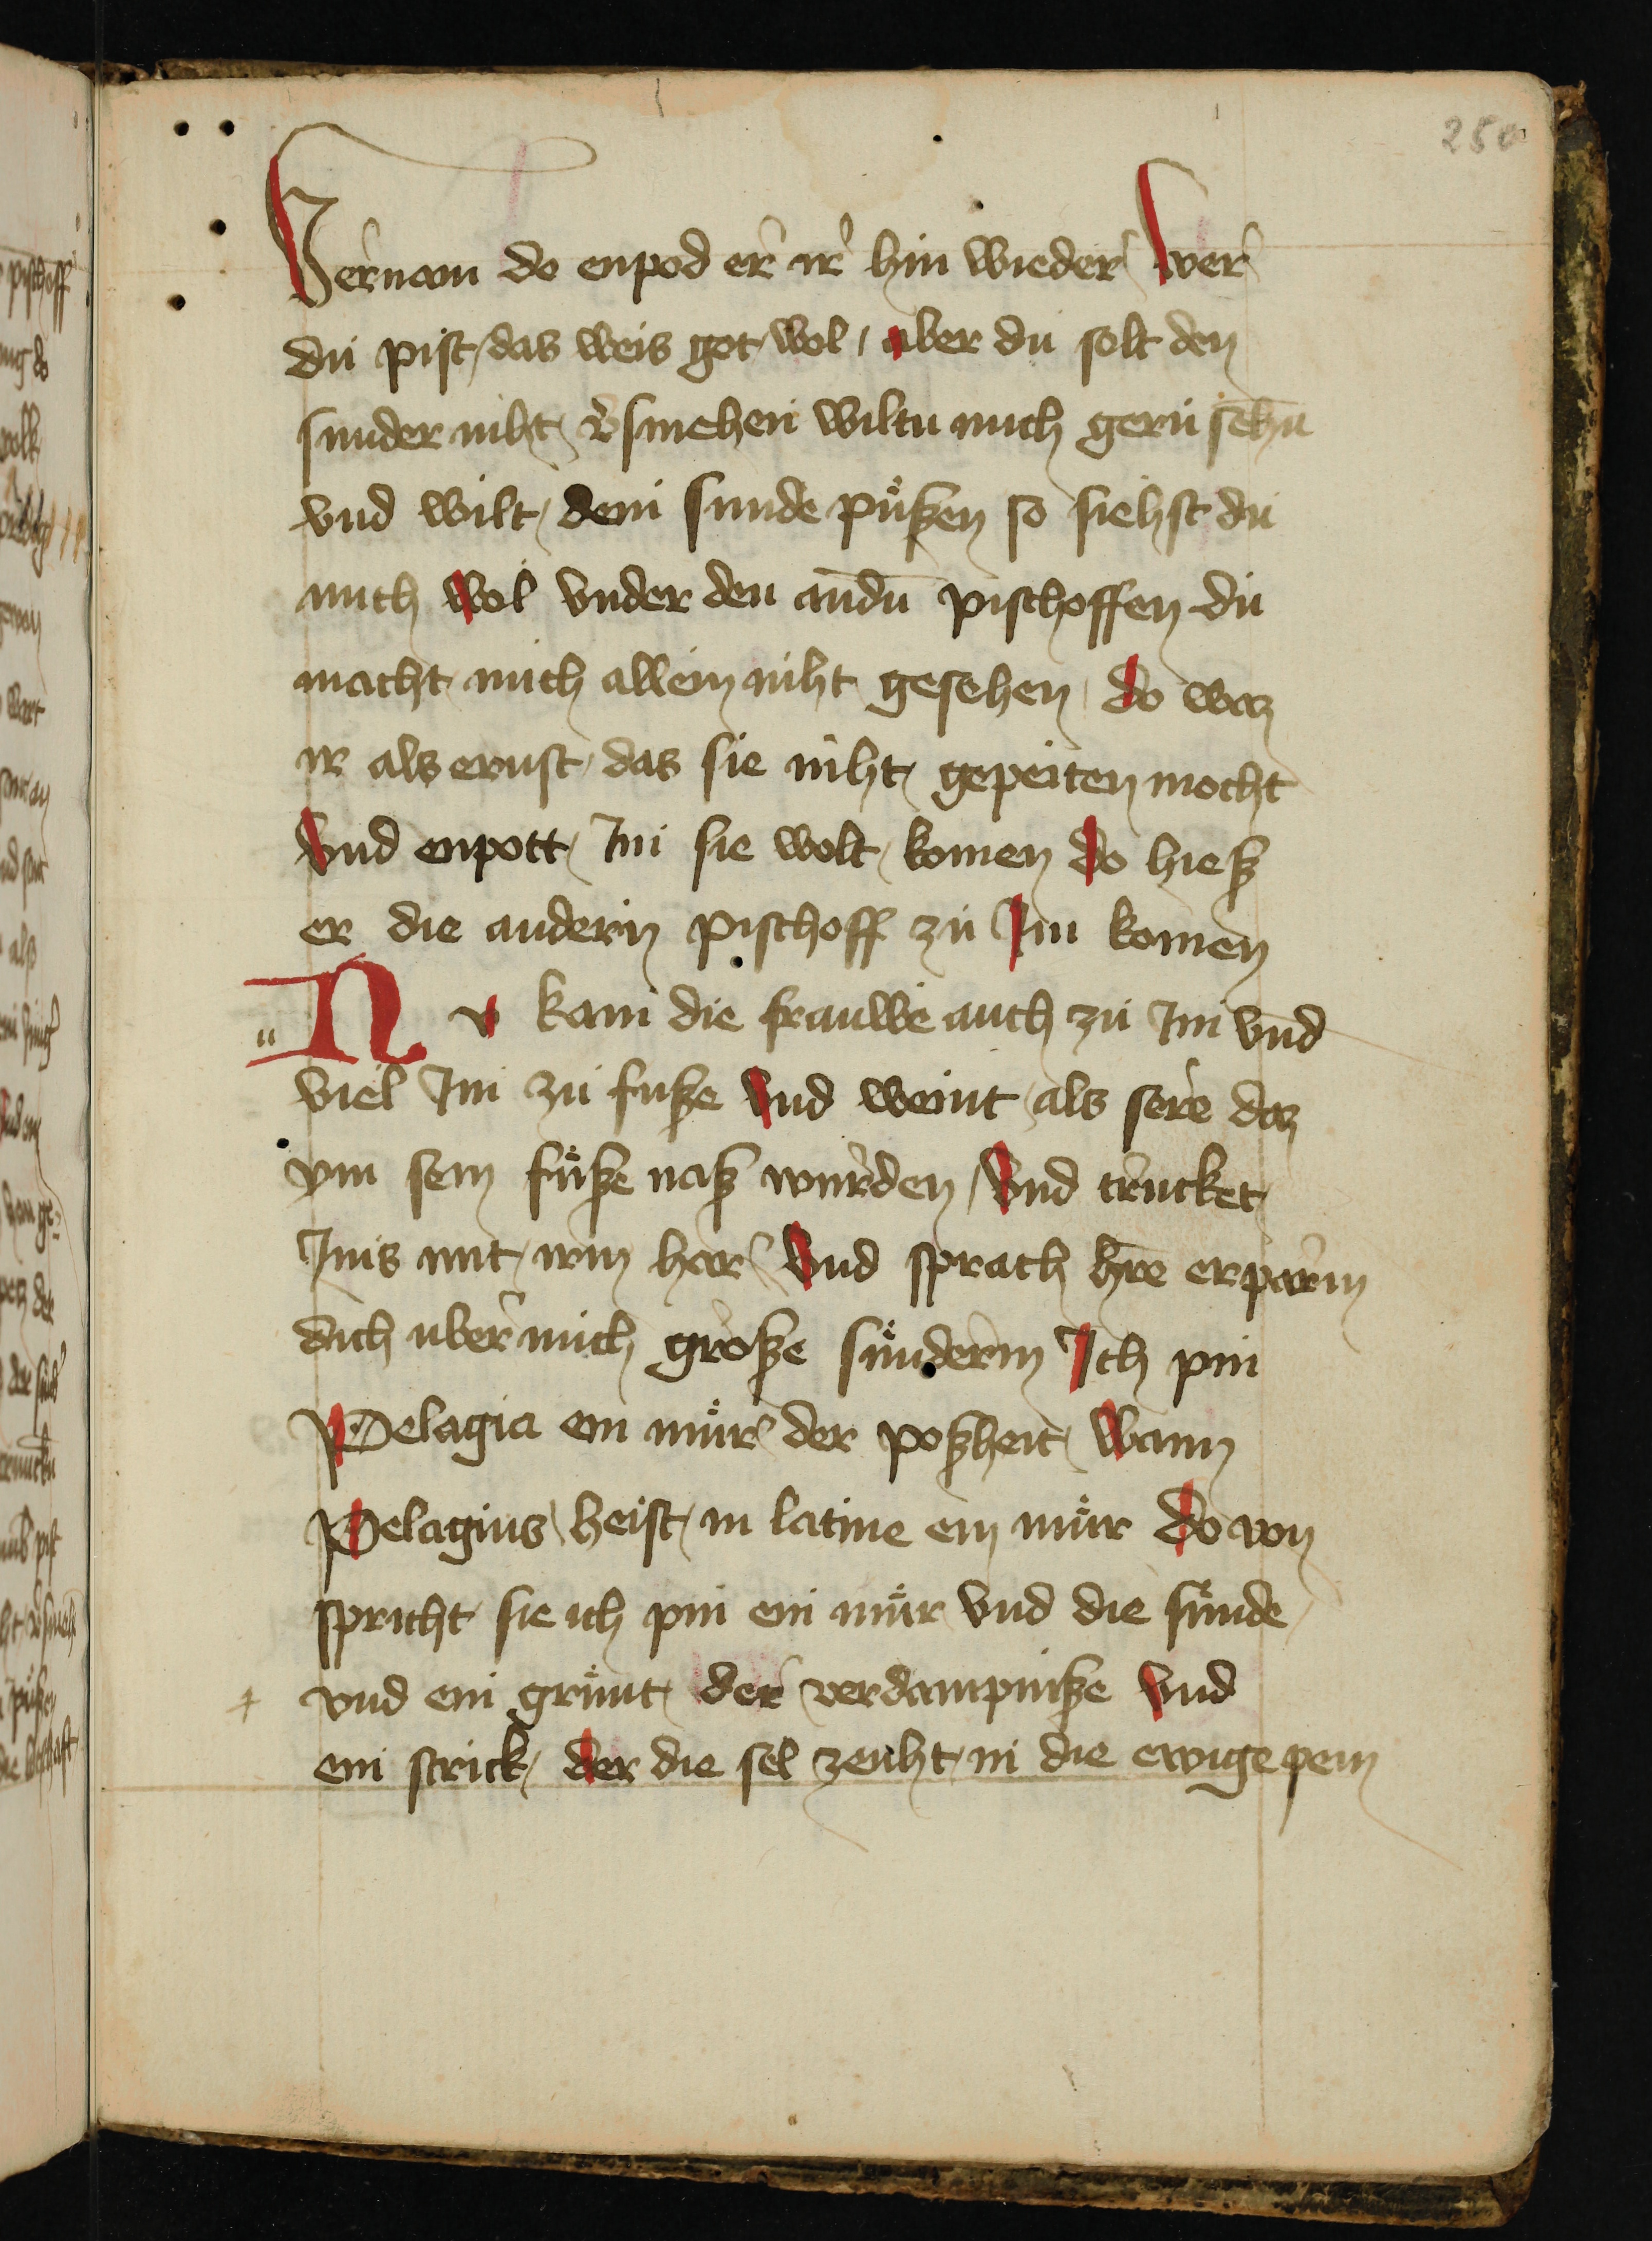 250
Vernam do enpod er ir hin wieder Wer
du pist das weis got wol, aber du solt den
sunder niht v̾smehen wiltu mich gern sehn̄
vnd wilt dein sunde püßen so siehst du
mich wol vnder den and̄n pischoffen du
macht mich allein niht gesehen do waz
ir als ernst das sie niht gepeiten mocht
Vnd enpott Im sie wolt komen do hieß
er die andern pischoff zu Im komen
Nv kam die frauwe auch zu Im vnd
viel Im zu fuße Vnd weint als sere daz
ym sein füße naß wurden Vnd trucket
Ims mit irm har Vnd sprach hr̄e erparm
dich uber mich große sünderin Ich pin
Pelagia ein mür der poßheit Wann
Pelagius heist in latine ein mür do von
spricht sie ich pin ein mür vnd die sünde
vnd ein grünt der verdampniße Vnd
ein strick der die sel zeuht in die ewige pein